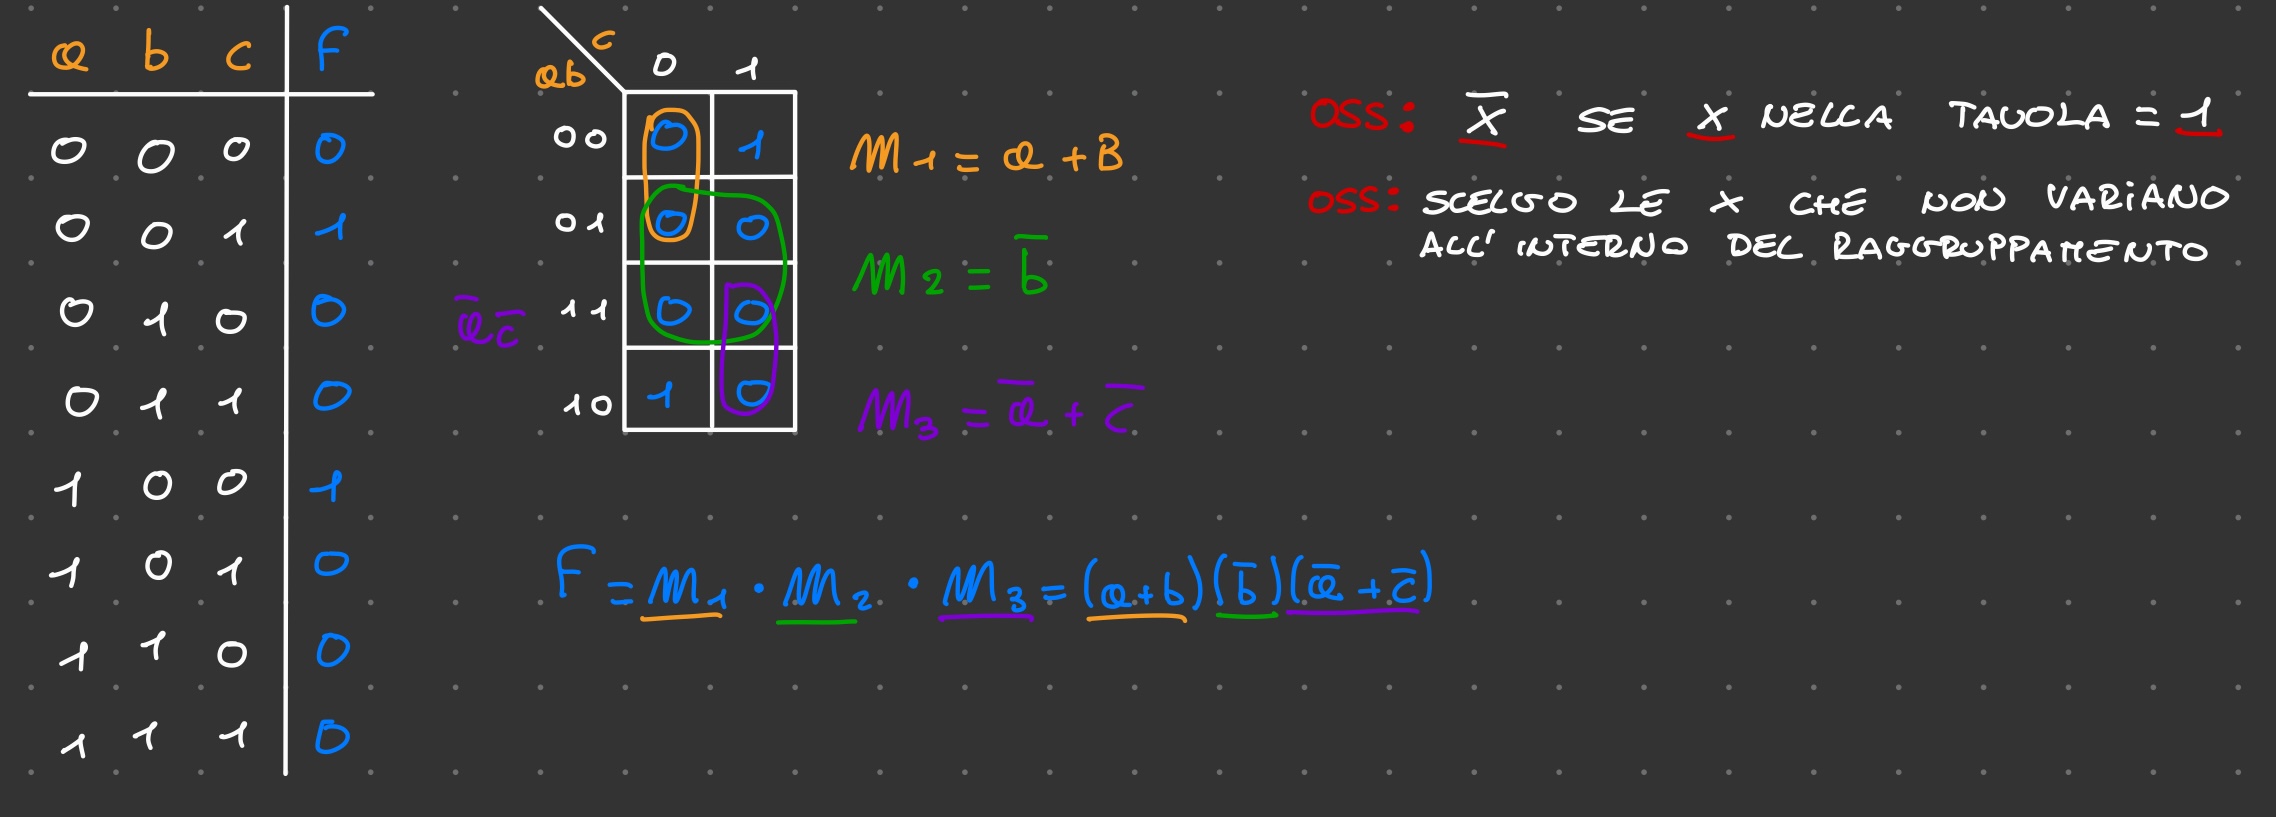 a b c F
0 0 0 0
0 0 1 1
0 1 0 0
0 1 1 0
1 0 0 1
1 0 1 0
1 1 0 0
1 1 1 0
c
ab 0 1
00 0 1
01 0 0
a̅c̅ 11 0 0
10 1 0
M1 = a + B
M2 = b̅
M3 = a̅ + c̅
F = M1 · M2 · M3 = (a+b)(b̅)(a̅+c̅)
OSS: X̅ SE X NELLA TAVOLA = 1
OSS: SCELGO LE X CHE NON VARIANO
ALL' INTERNO DEL RAGGRUPPAMENTO